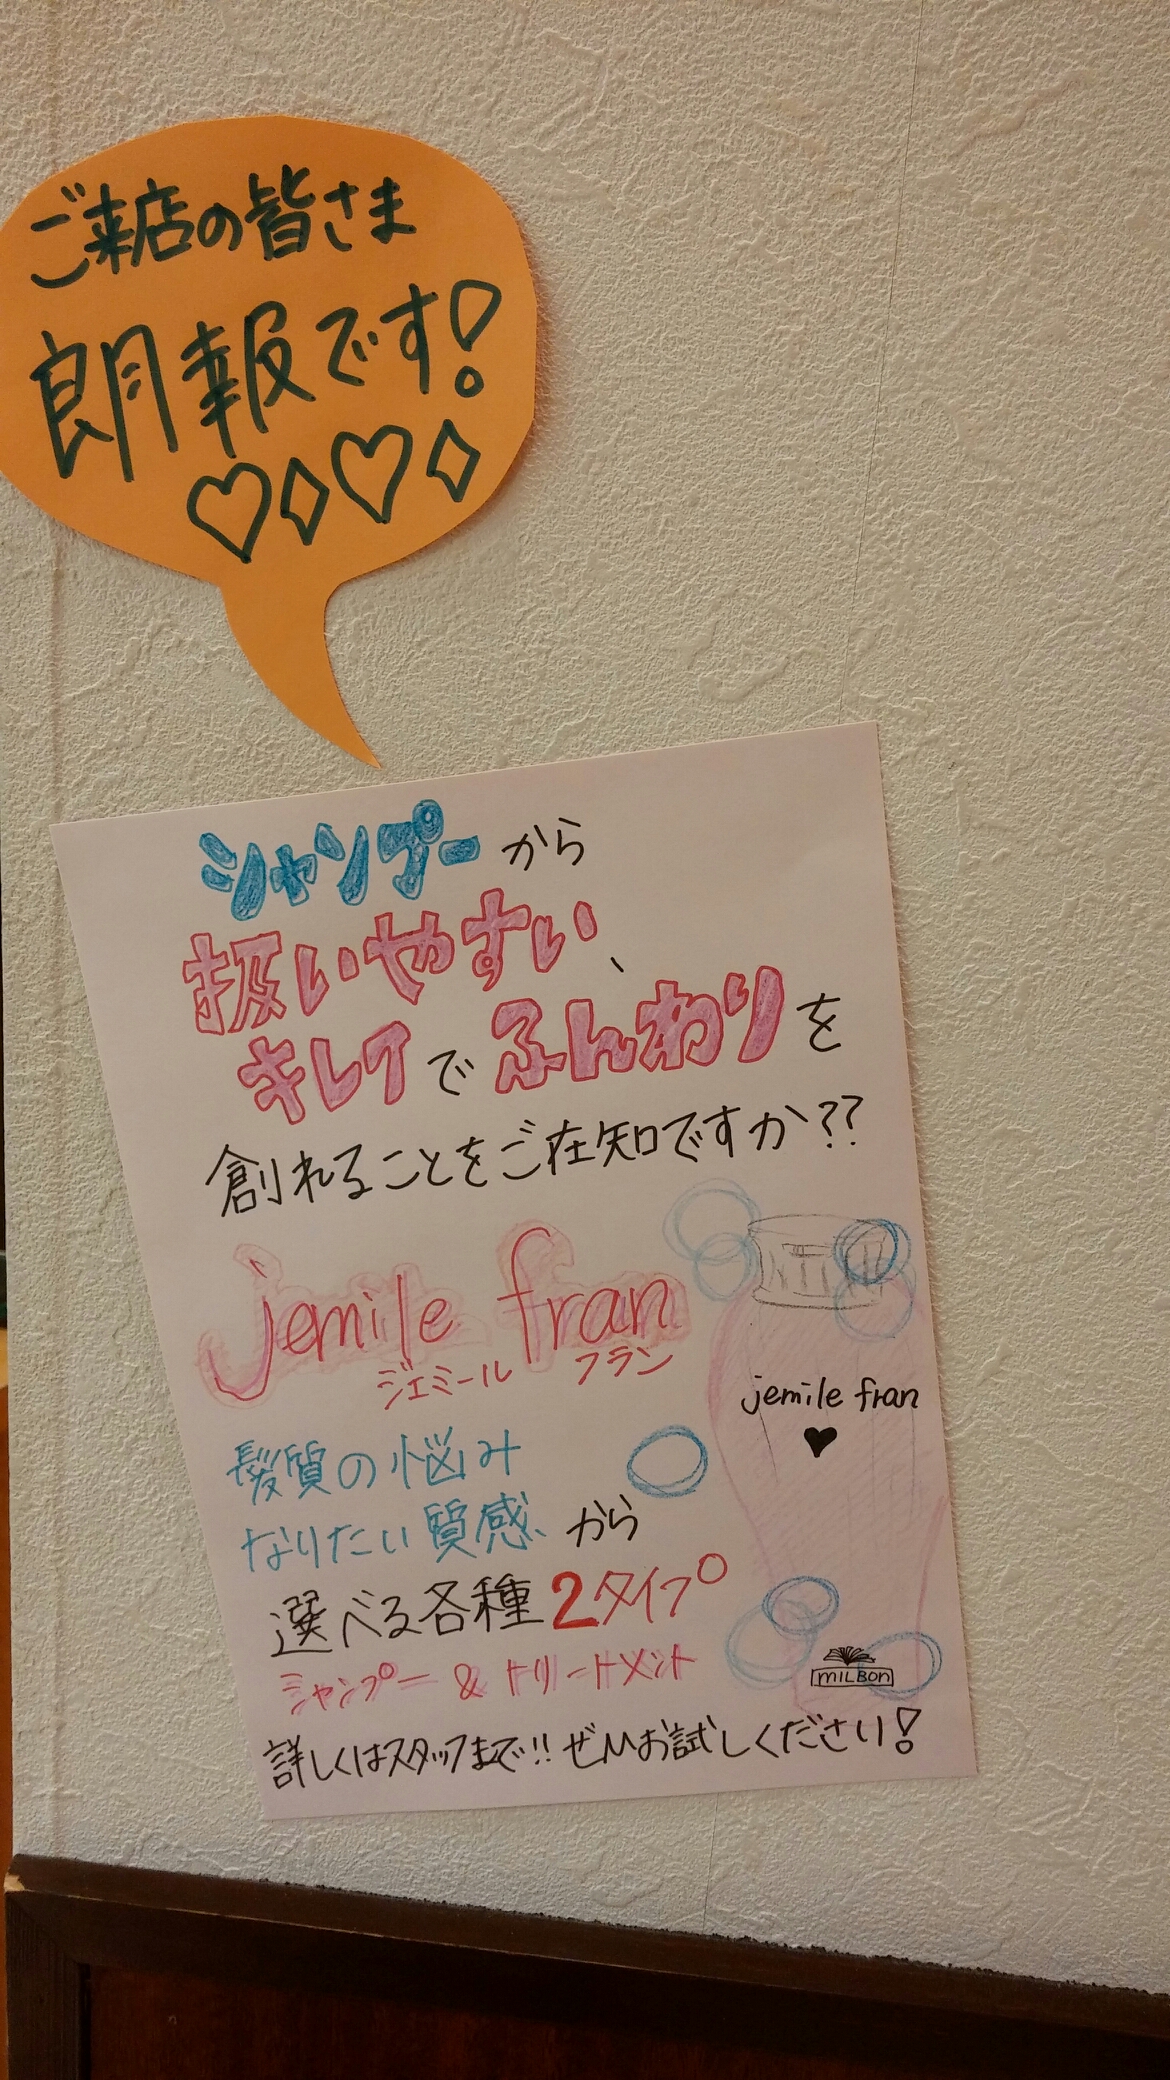 ご来店の皆さま
朗報です!
♡◇♡◇
シャンプーから
扱いやすい、
キレイでふんわりを
創れることをご存知ですか??
jemile fran
ジェミール フラン
髪質の悩み
なりたい質感から
選べる各種2タイプ
シャンプー & トリートメント
詳しくはスタッフまで!! ぜひお試しください!
jemile fran
♥
MILBON